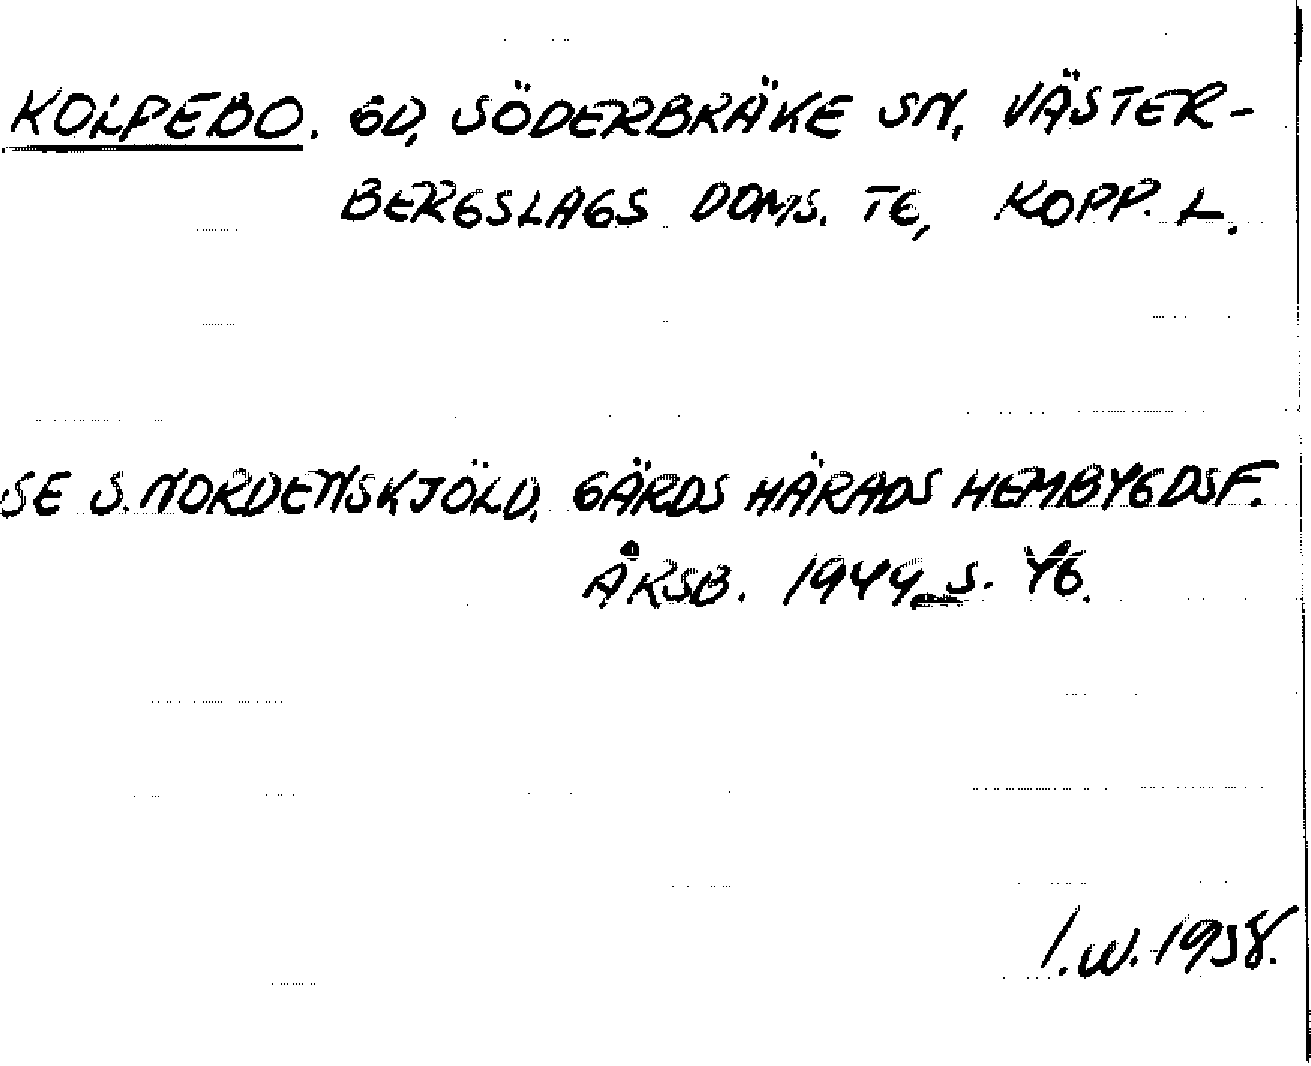 KOLPEBO. GD, SÖDERBRÄKE SN, VÄSTER-
BERGSLAGS DOMS. TE, KOPP. L.
SE S. NORDENSKJÖLD, GÄRDS HÄRADS HEMBYGDSF.
ÅRSB. 1944 S. 46.
I.W. 1958.